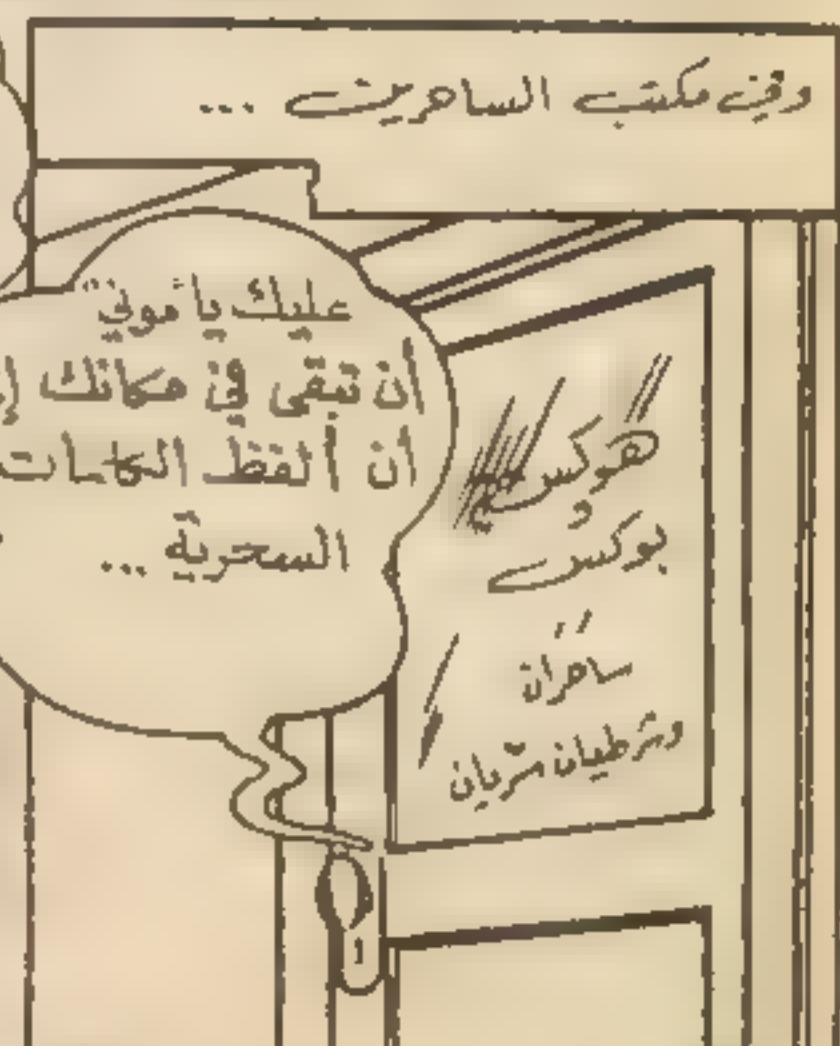 وفي مكتب الساحرين ...
عليك يا "موني"
أن تبقى في مكانك
أن ألفظ الكلمات
السحرية ...
هوكس
و
بوكس
ساحران
وشرطيان سريان